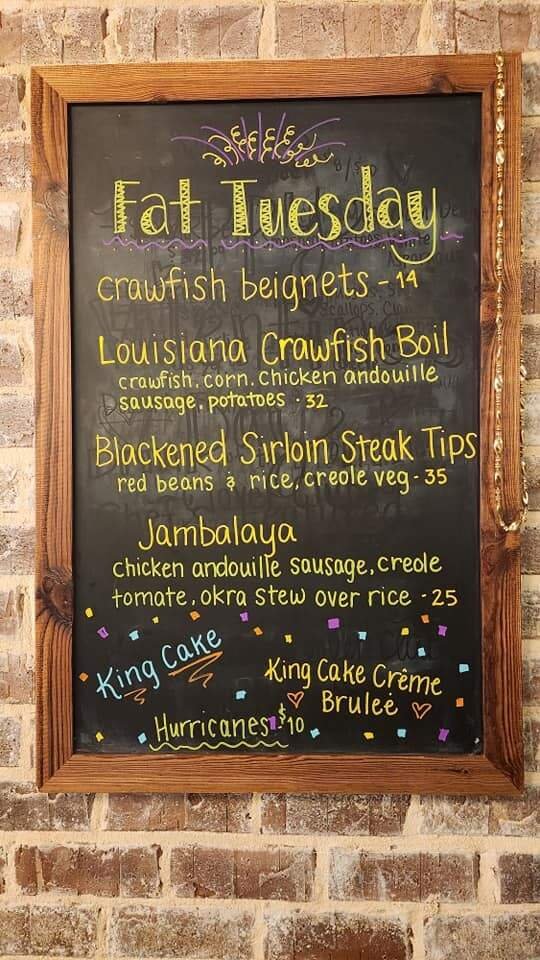 Fat Tuesday
crawfish beignets - 14
Louisiana Crawfish Boil
crawfish, corn. Chicken andouille
sausage, potatoes - 32
Blackened Sirloin Steak Tips
red beans & rice, creole veg - 35
Jambalaya
chicken andouille sausage, creole
tomato, okra stew over rice - 25
King Cake
King Cake Crême
Bruleé
Hurricanes $10